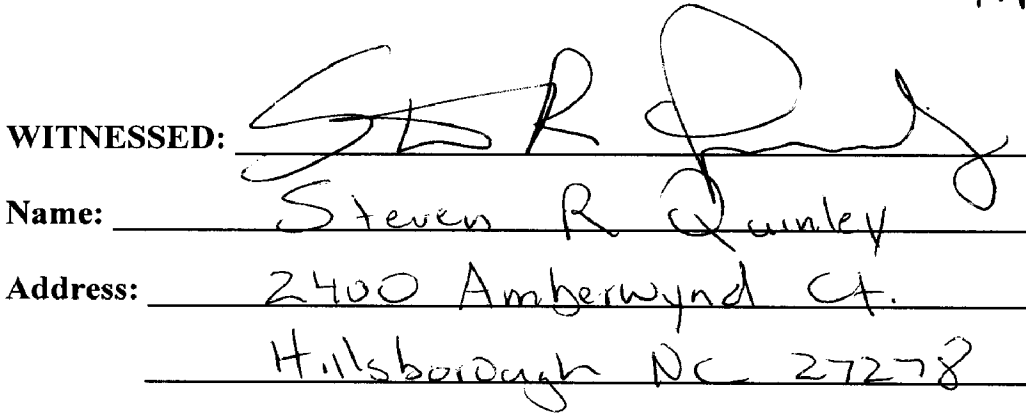 WITNESSED:
Name: Steven R Quinley
Address: 2400 Amberwynd Ct.
Hillsborough NC 27278